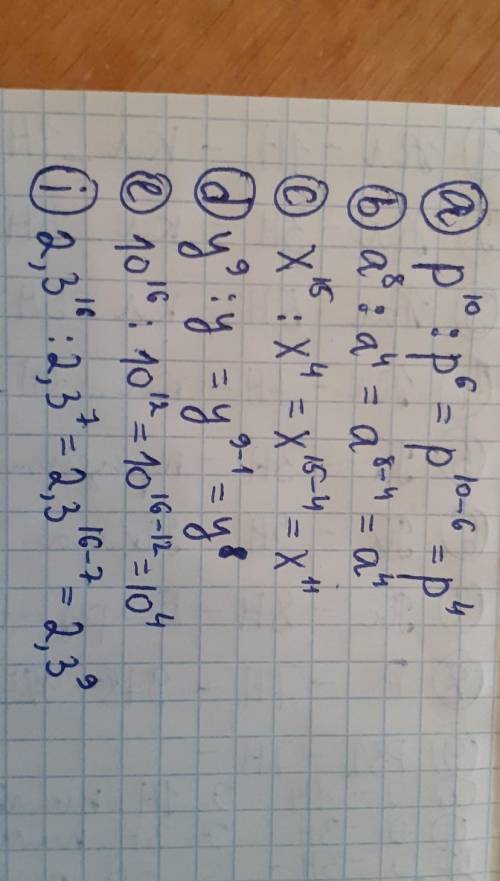 a p¹⁰ : p⁶ = p¹⁰⁻⁶ = p⁴
b a⁸ : a⁴ = a⁸⁻⁴ = a⁴
c x¹⁵ : x⁴ = x¹⁵⁻⁴ = x¹¹
d y⁹ : y = y⁹⁻¹ = y⁸
e 10¹⁶ : 10¹² = 10¹⁶⁻¹² = 10⁴
i 2,3¹⁶ : 2,3⁷ = 2,3¹⁶⁻⁷ = 2,3⁹